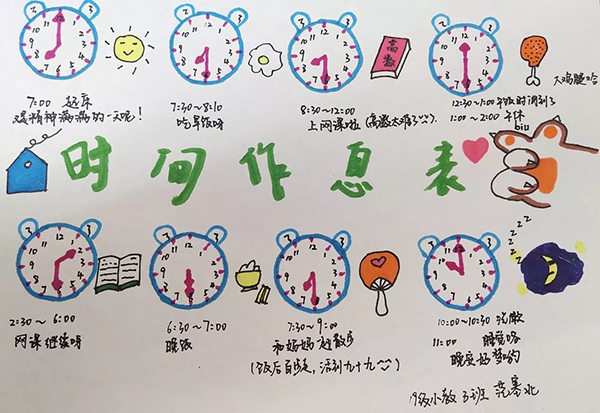 7:00 起床
又是精神满满的一天呢！
7:30～8:10
吃早饭呀
高数
8:30～12:00
上网课啦（高数太难了
大鸡腿哈
12:30～1:00 午饭时间到了
1:00～2:00 午休
biu
时间作息表
2:30～6:00
网课继续呀
6:30～7:00
晚饭
7:30～9:00
和妈妈去散步
（饭后百步走，活到九十九
z z z z z z
10:00～10:30 洗漱
11:00 睡觉咯
晚安好梦哟
19级小教3班